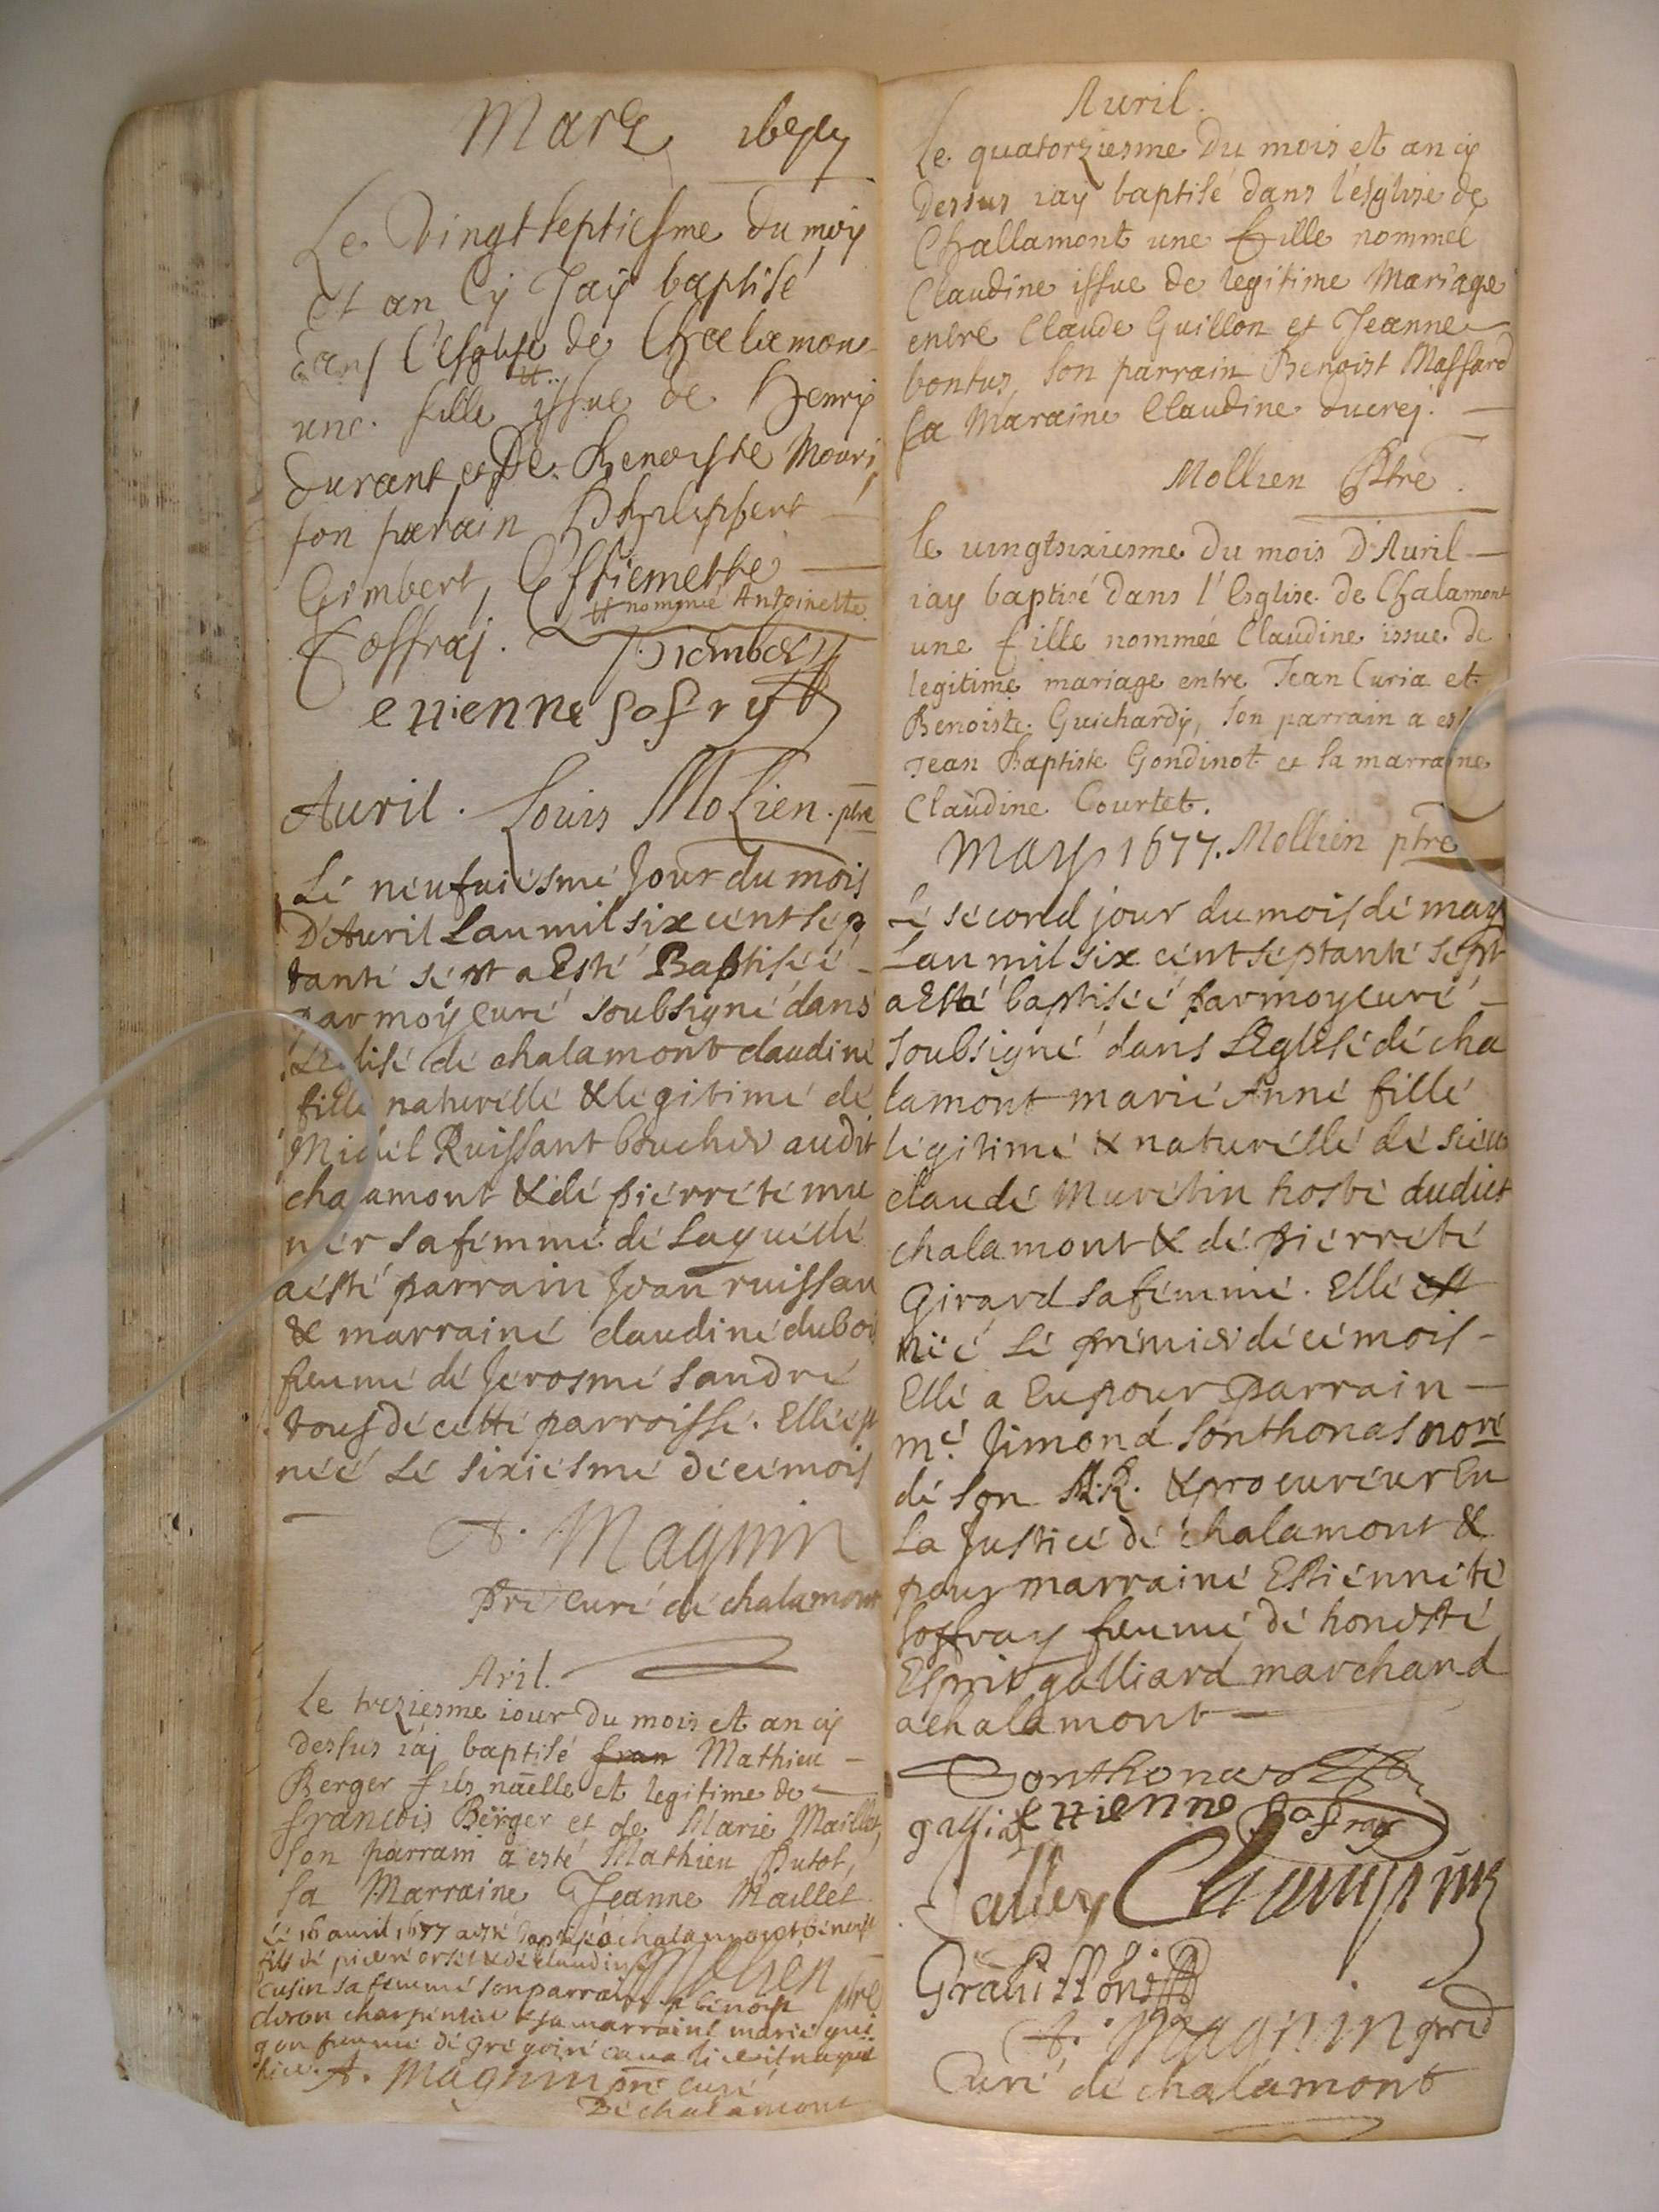 Mars 1677
Le Vingt septiesme du moy
et an Cy Jay baptisé
dans l'Esglise de Chalamon
une fille issue de Henry
durant et De Benoiste Mouri
son parain Philippbert
Gimbert, Estiemette
# nommée Antoinette
Joffraj. P. Gimbert
etienne Jofrey
Auril. Louis Molien. ptre
Lé neufuiésmé Jour du mois
D'Auril Lan mil six cent sep
tanté sépt a Esté Baptiséé
par moÿ curé soubsigné dans
L'eglisé dé chalamont claudiné
fille naturéllé & légitimé dé
Michél Ruissant boucher audit
chalamont & dé piérrété mu
nér sa fémmé dé Laquéllé
a ésté parrain Jean ruissan
& marrainé claudiné duboi
femmé dé Jérosmé Sandré
tous dé cetté parroissé. Elle est
néé Lé sixiésmé dé cé mois
A. Magnin
ptre Curé dé chalamont
Aril.
Le treziesme iour du mois et an cy
dessus iaj baptisé fran Mathieu
Berger fils naelle et legitime de
francois Berger et de Marie Maillet,
son parrain a esté Mathieu Butot,
sa Marraine Jeanne Maillet
Lé 16 auril 1677 a esté baptisé a chalamont bénoist
fils dé piérré orsél & dé claudiné
Cusin sa femmé son parrain bénoist
Molien ptre
charpentier & sa marrainé marié gui
gon femmé dé Grégoiré
A. Magnin ptre curé
Dé chalamont
Auril.
Le quatorziesme Du mois et an cy
Dessus iaÿ baptisé dans l'esglise de
Challamont une fille nommeé
Claudine issue de legitime Mariage
entre Claude Guillon et Jeanne
bontus, son parrain Benoist Massard
sa Maraine Claudine ducrej.
Mollien Ptre.
le uingtsixiesme du mois D'Auril
iay baptisé dans l'Esglise de Chalamont
une fille nommeé Claudine issue de
legitime mariage entre Jean Curia et
Benoiste Guichardÿ, son parrain a esté
Jean Baptiste Gondinot et sa marraine
Claudine Courtet.
May 1677. Mollien ptre
Lé sécond jour du mois dé may
Lan mil six cént séptanté sépt
a Esté baptiséé par moy curé
soubsigné dans L'Eglisé dé cha
lamont marié Anné fillé
légitimé & naturéllé dé sieur
claudé Murétin hosté dudict
chalamont & dé piérrété
Girard sa fémmé. Ellé est
néé Lé prémiér dé cé mois
Ellé a Eu pour parrain
mé. Jimond Sonthonas noré
dé son A.R. & procuréur En
La Justicé dé chalamont &
pour marrainé Estiénnété
Joffray femmé dé honésté
Esprit galliard marchand
a chalamont
Sonthonas
galliar Ettienne Jofray
Jalley Champin
A. Magnin ptre
Curé dé chalamont